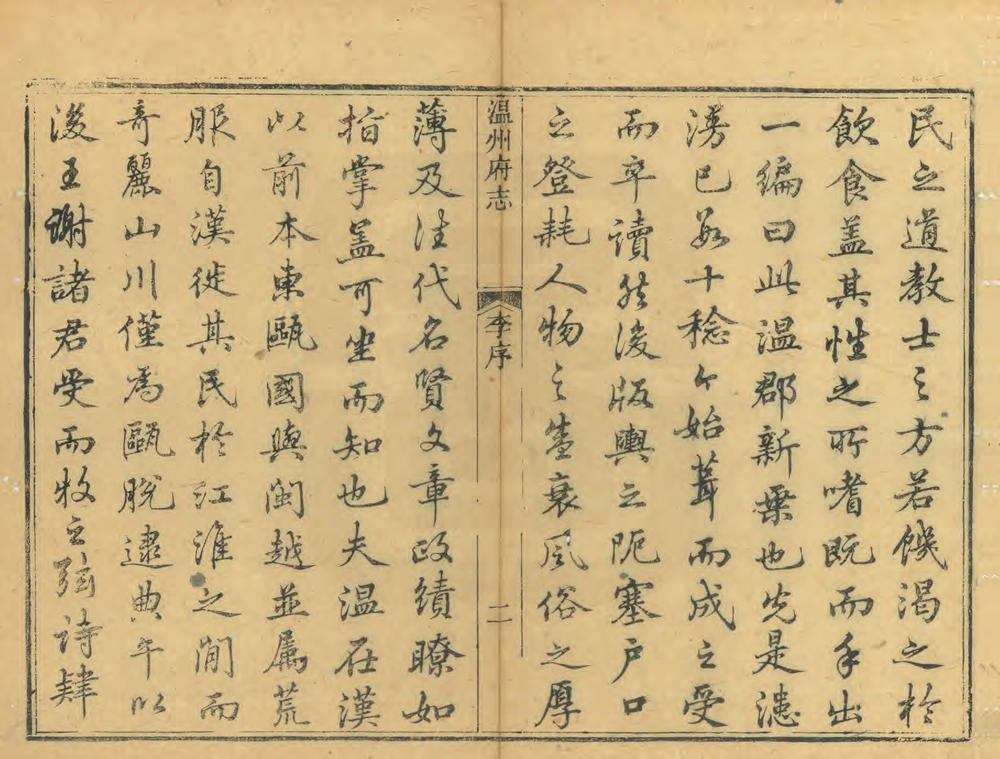 民之道教士之方若饑渴之於
飲食蓋其性之所嗜既而手出
一編曰此温郡新乗也先是漶
漫已數十稔今始葺而成之受
而卒讀然後版輿之阨塞户口
之登耗人物之盛衰風俗之厚
温州府志
李序
二
薄及往代名賢文章政績瞭如
指掌蓋可坐而知也夫温在漢
以前本東甌國與閩越並属荒
服自漢徙其民於江淮之間而
奇麗山川僅為甌脫逮典午以
後王謝諸君受而牧之弦詩肄